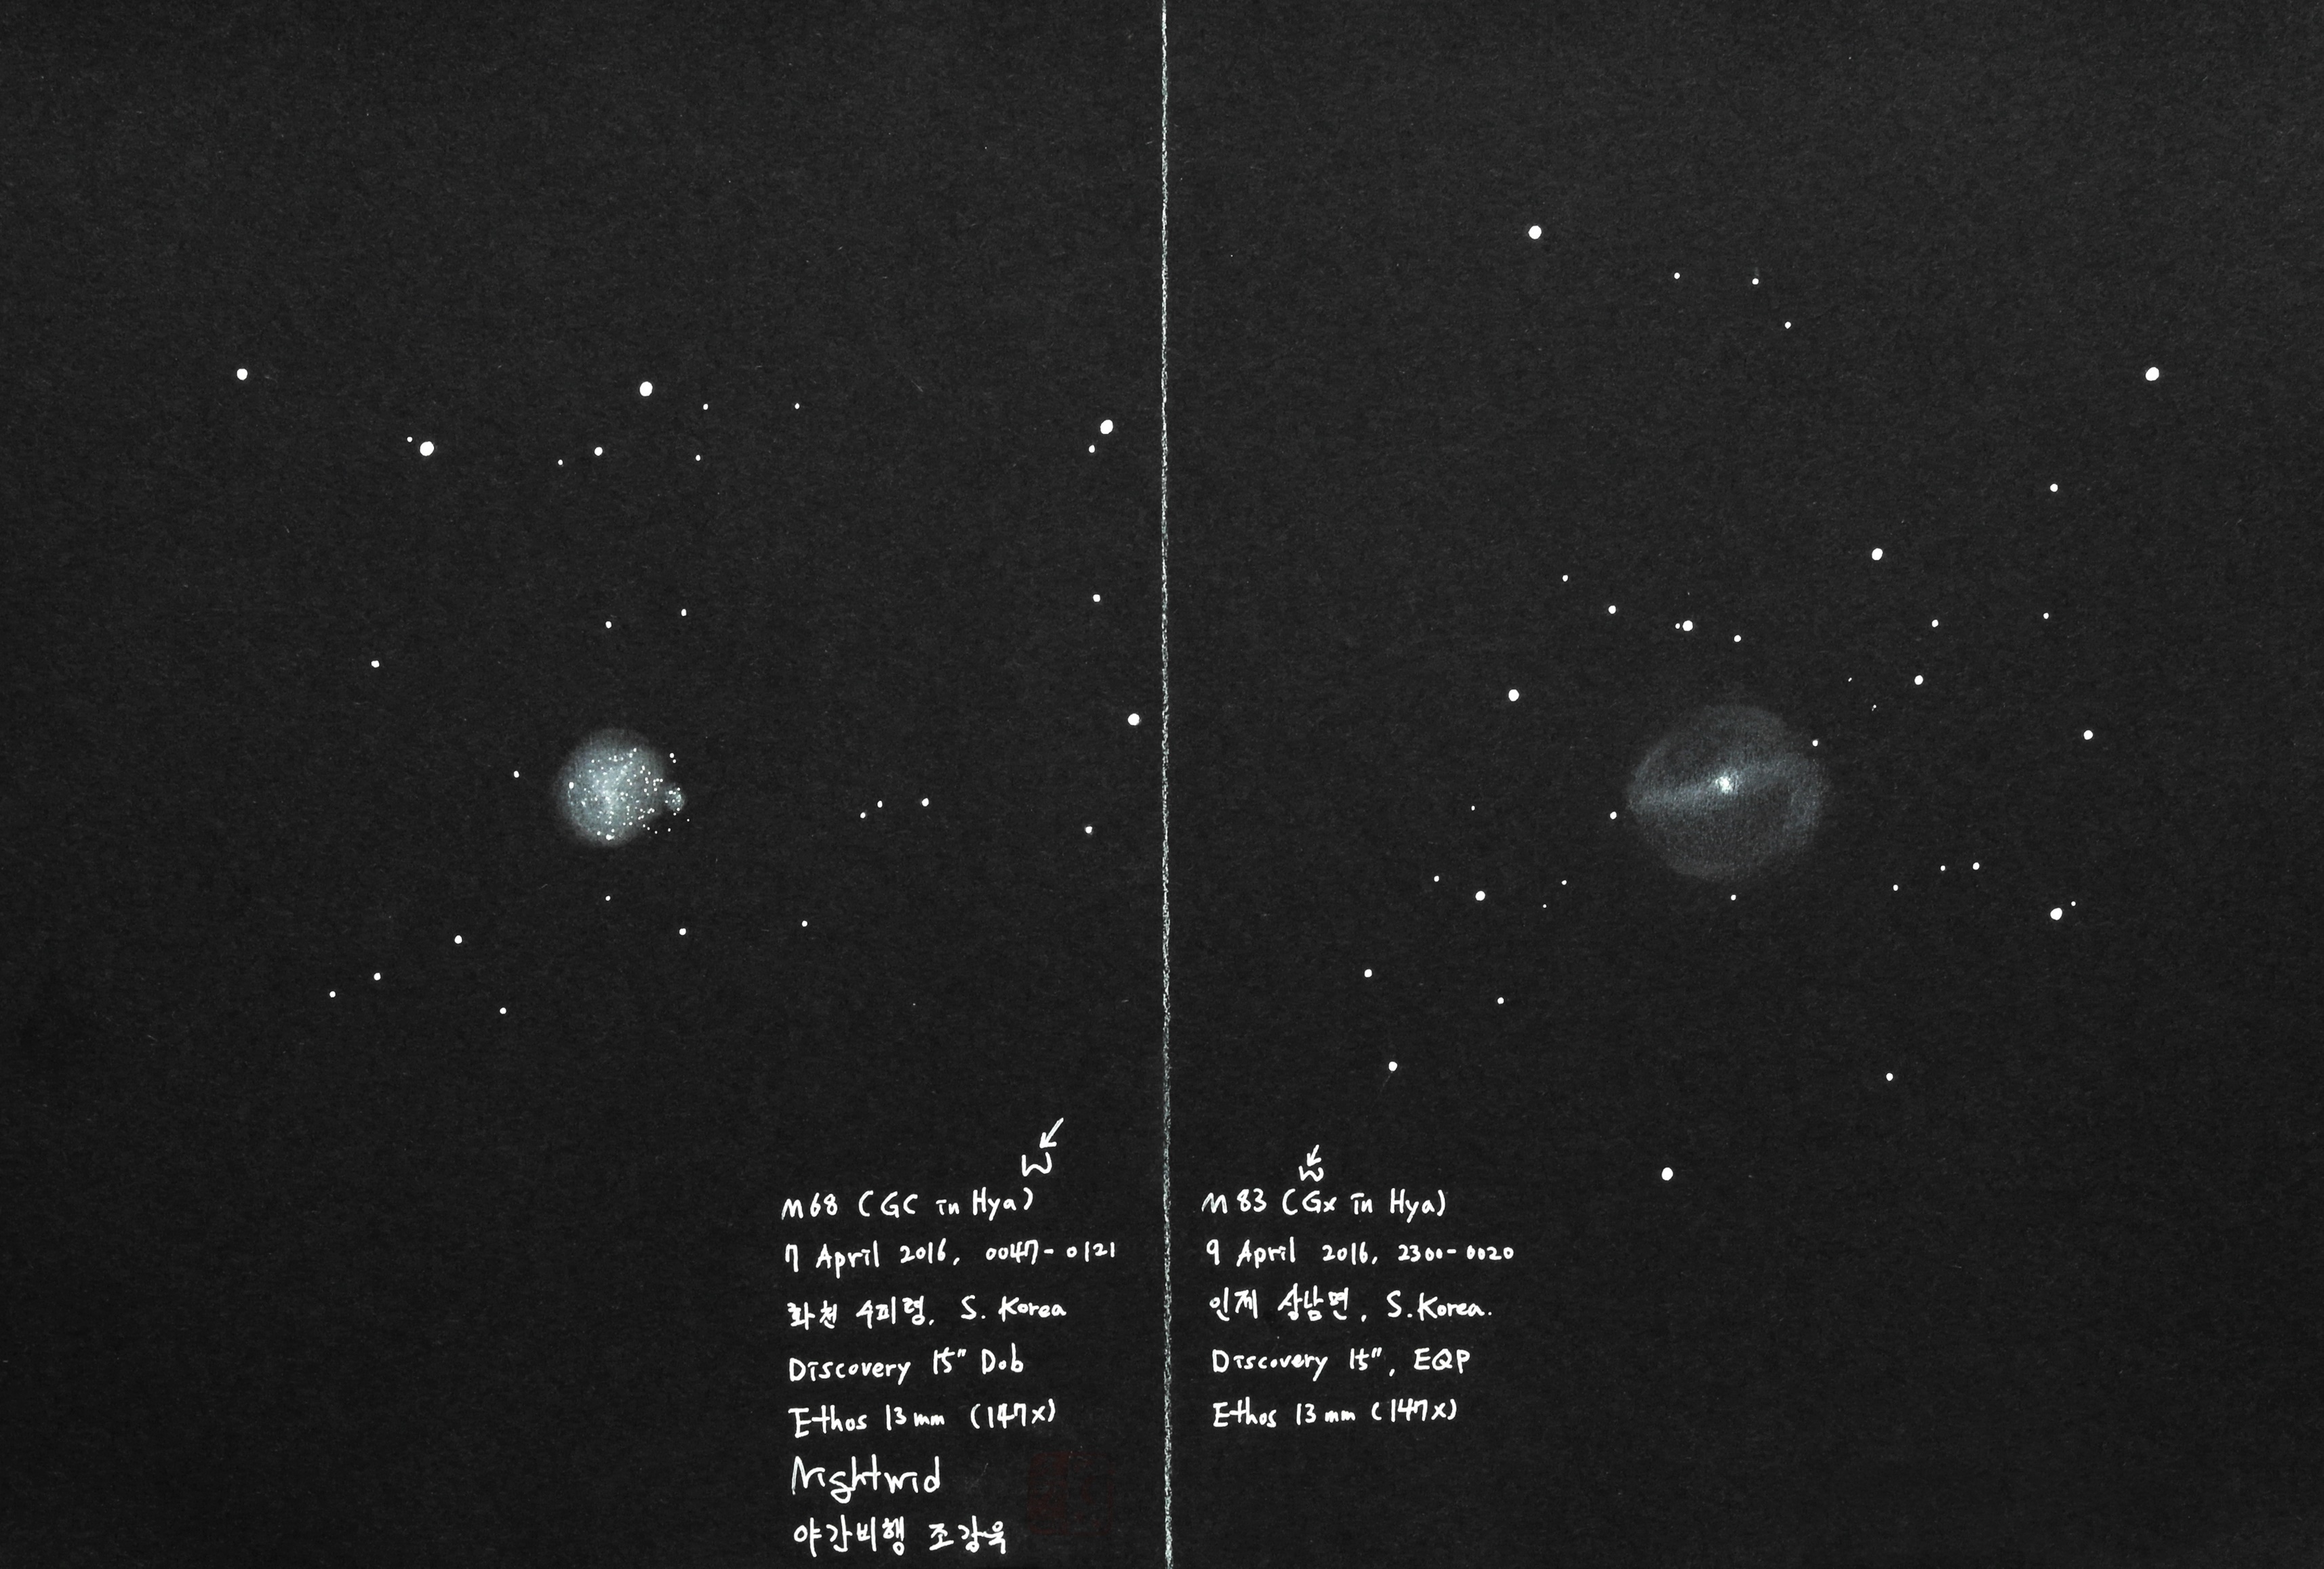 W
M68 (GC in Hya)
7 April 2016, 0047-0121
화천 수피령, S. Korea
Discovery 15" Dob
Ethos 13mm (147x)
Nightwid
야간비행 조강욱
W
M83 (Gx in Hya)
9 April 2016, 2300-0020
인제 상남면, S.Korea.
Discovery 15", EQP
Ethos 13mm (147x)